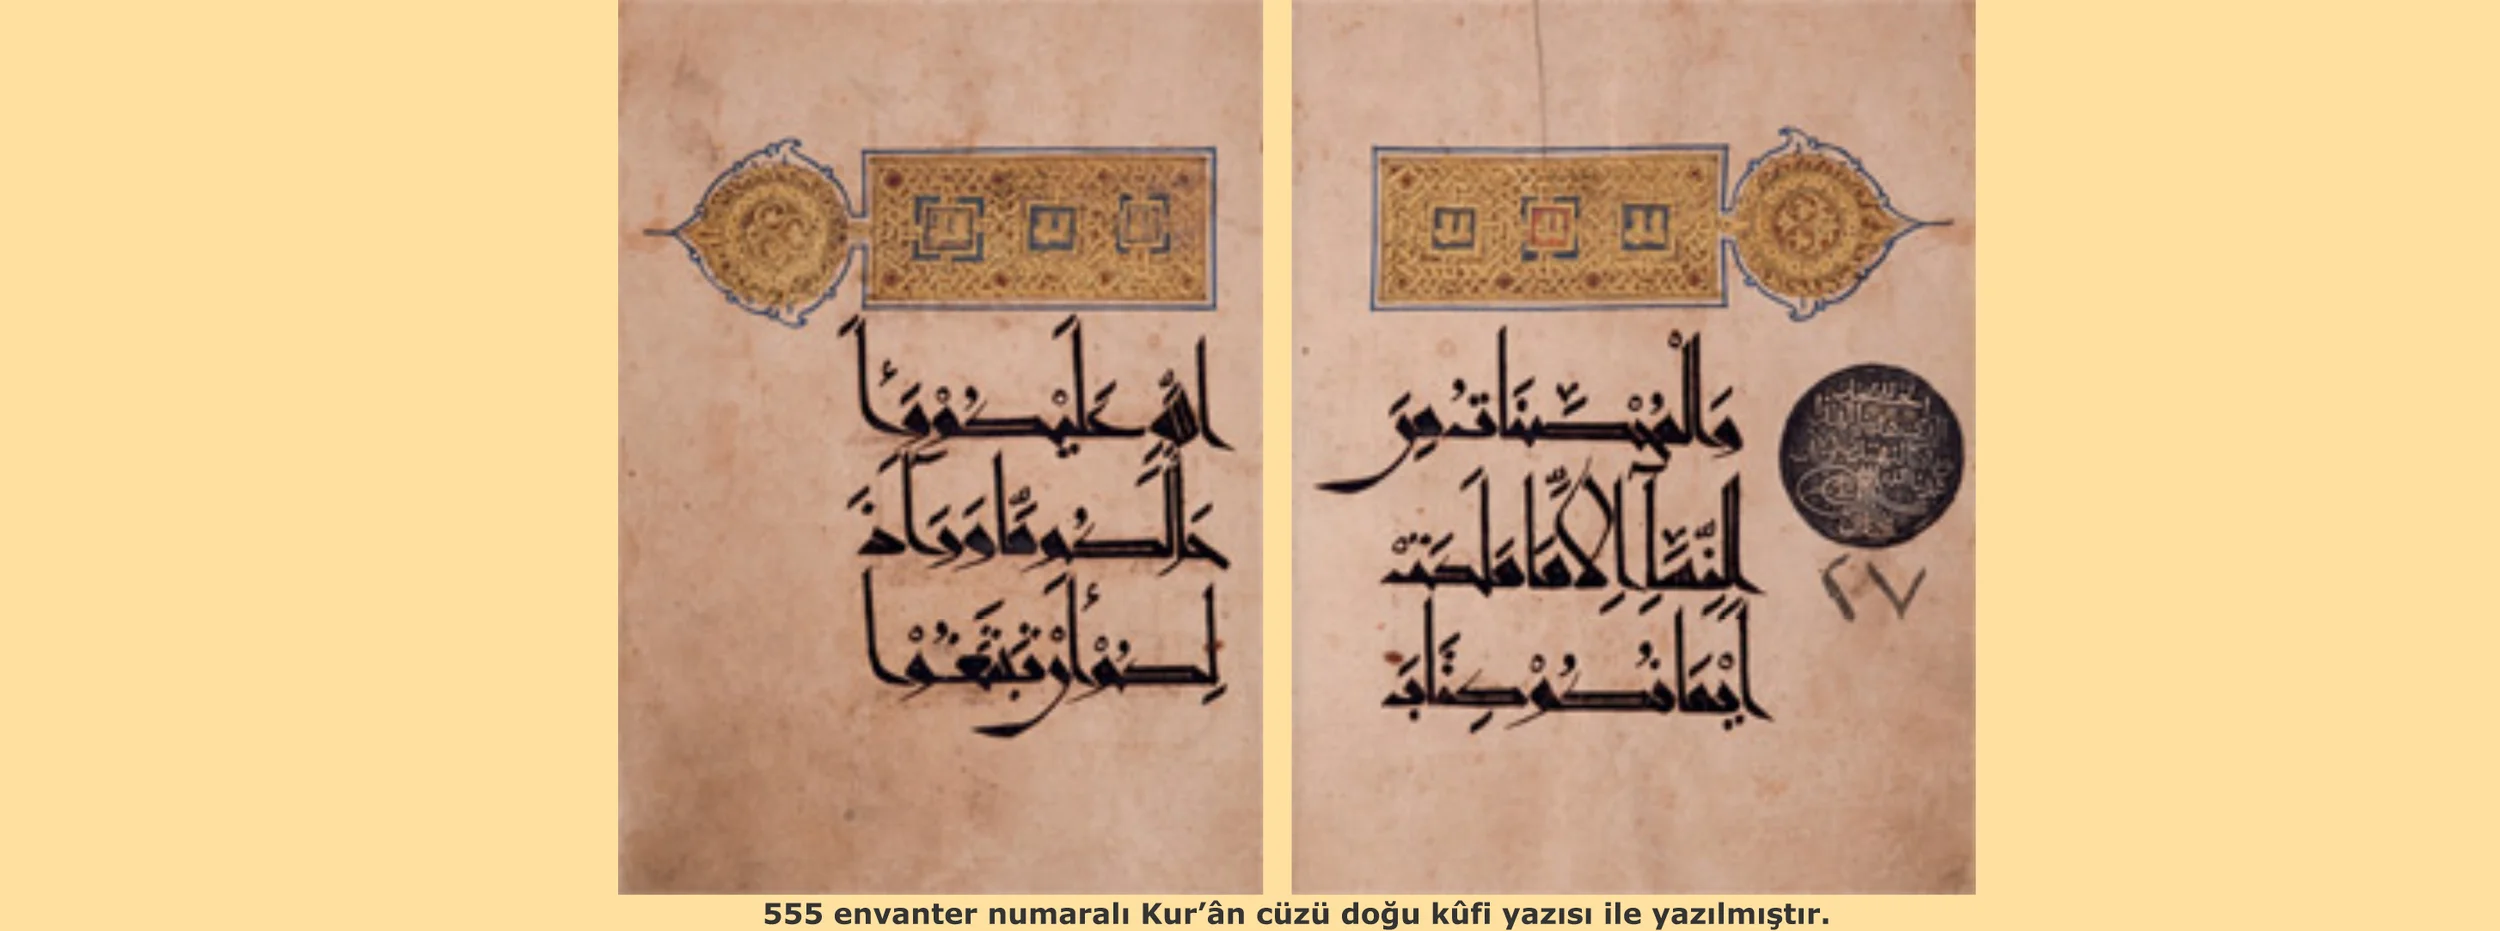 وَالْمُحْصَنَاتُ مِنَ
النِّسَآءِ اِلَّا مَا مَلَكَتْ
اَيْمَانُكُمْ كِتَابَ
٢٧
اللّٰهِ عَلَيْكُمْ وَأُ
حِلَّ لَكُمْ مَّا وَرَآءَ ذَ
لِكُمْ أَنْ تَبْتَغُوْا
555 envanter numaralı Kur’ân cüzü doğu kûfi yazısı ile yazılmıştır.